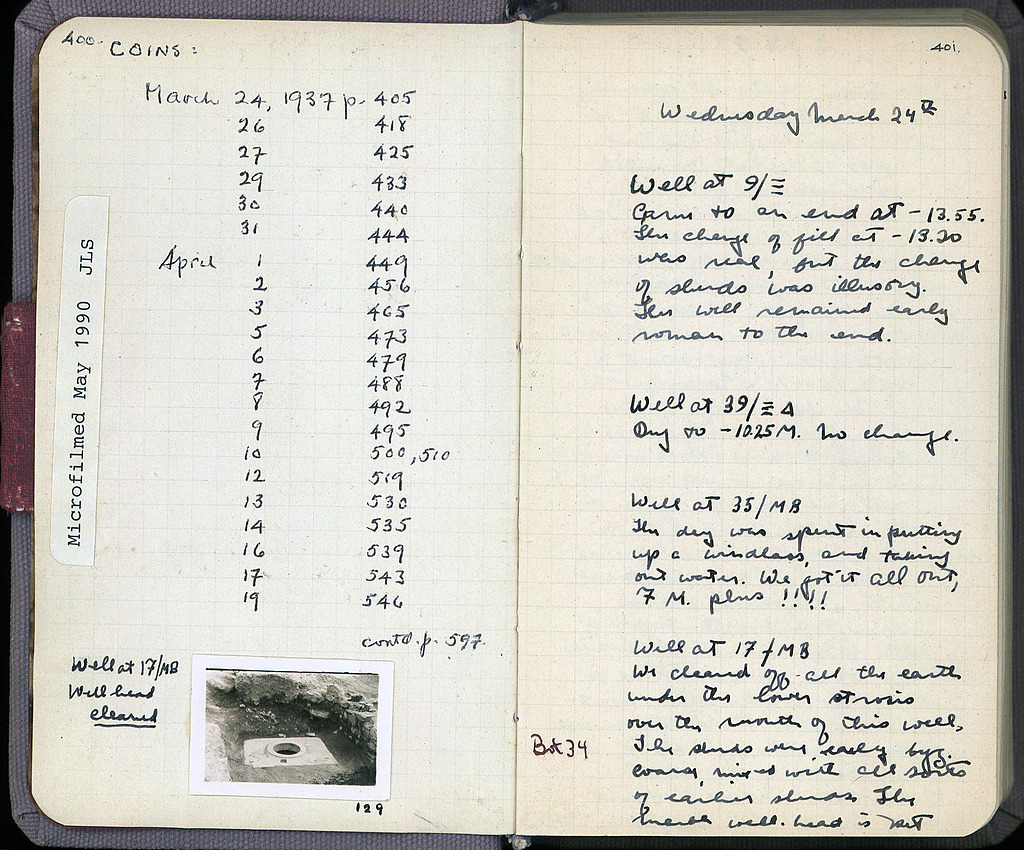 400
COINS:
March 24, 1937 p. 405
26 418
27 425
29 433
30 440
31 444
April 1 449
2 456
3 465
5 473
6 479
7 488
8 492
9 495
10 500, 510
12 519
13 530
14 535
16 539
17 543
19 546
contd. p. 597
Microfilmed May 1990 JLS
Well at 17/MB
Well head
cleared
129
401.
Wednesday March 24th
Well at 9/Ξ
Came to an end at -13.55.
The change of fill at -13.20
was real, but the change
of sherds was illusory.
The well remained early
roman to the end.
Well at 39/Ξ Δ
Dug to -10.25 M. No change.
Well at 35/MB
The day was spent in putting
up a windlass, and taking
out water. We got it all out,
7 M. plus !!!!
Well at 17/MB
We cleared off all the earth
under the lower strosis
over the mouth of this well.
Bot 34
The sherds were early byz.
coarse, mixed with all sorts
of earlier sherds. The
marble well-head is set